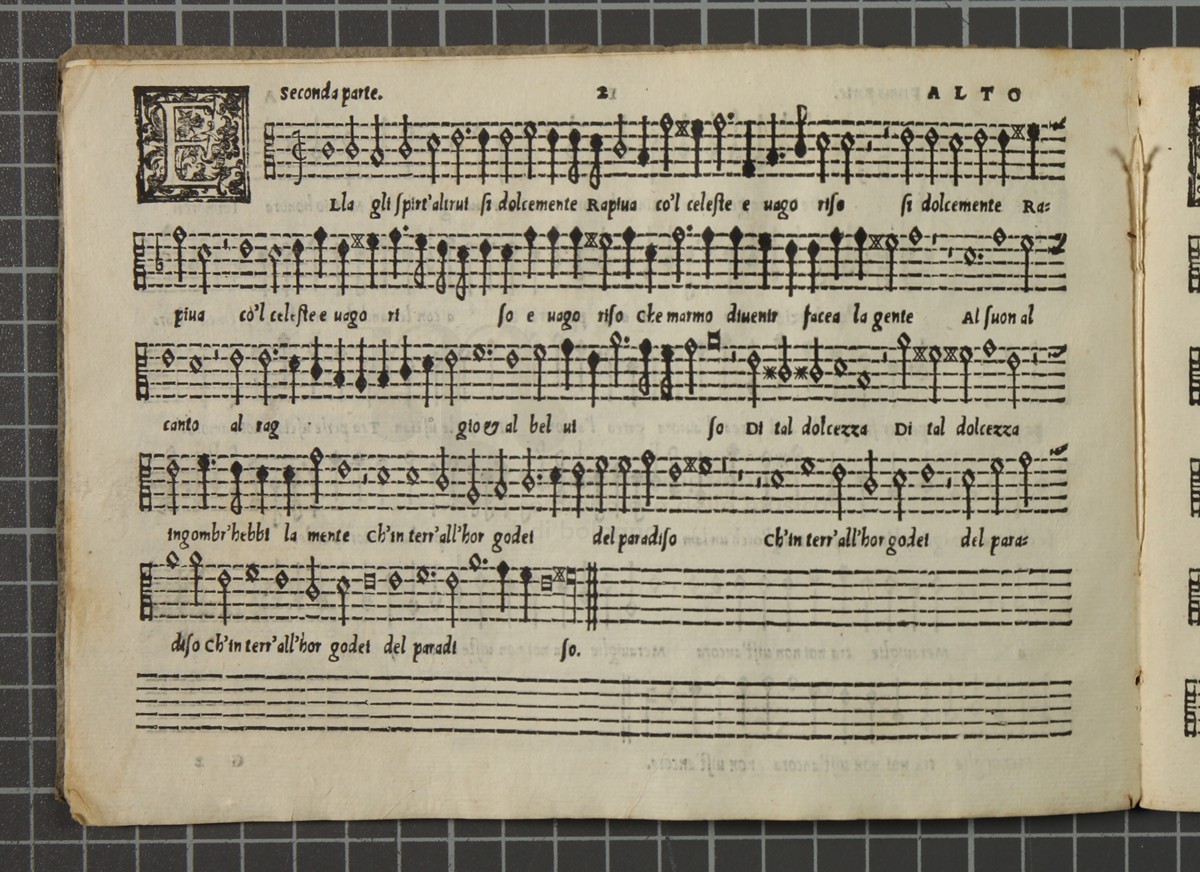 Seconda parte. 2 ALTO
ELla gli spirt'altrui si dolcemente Rapiua co'l celeste e uago riso si dolcemente Ra-
piua co'l celeste e uago ri so e uago riso Che marmo diuenir facea la gente Al suon al
canto al rag gio & al bel ui so Di tal dolcezza Di tal dolcezza
ingombr'hebbi la mente Ch'in terr'all'hor godei del paradiso Ch'in terr'all'hor godei del para-
diso Ch'in terr'all'hor godei del paradi so.